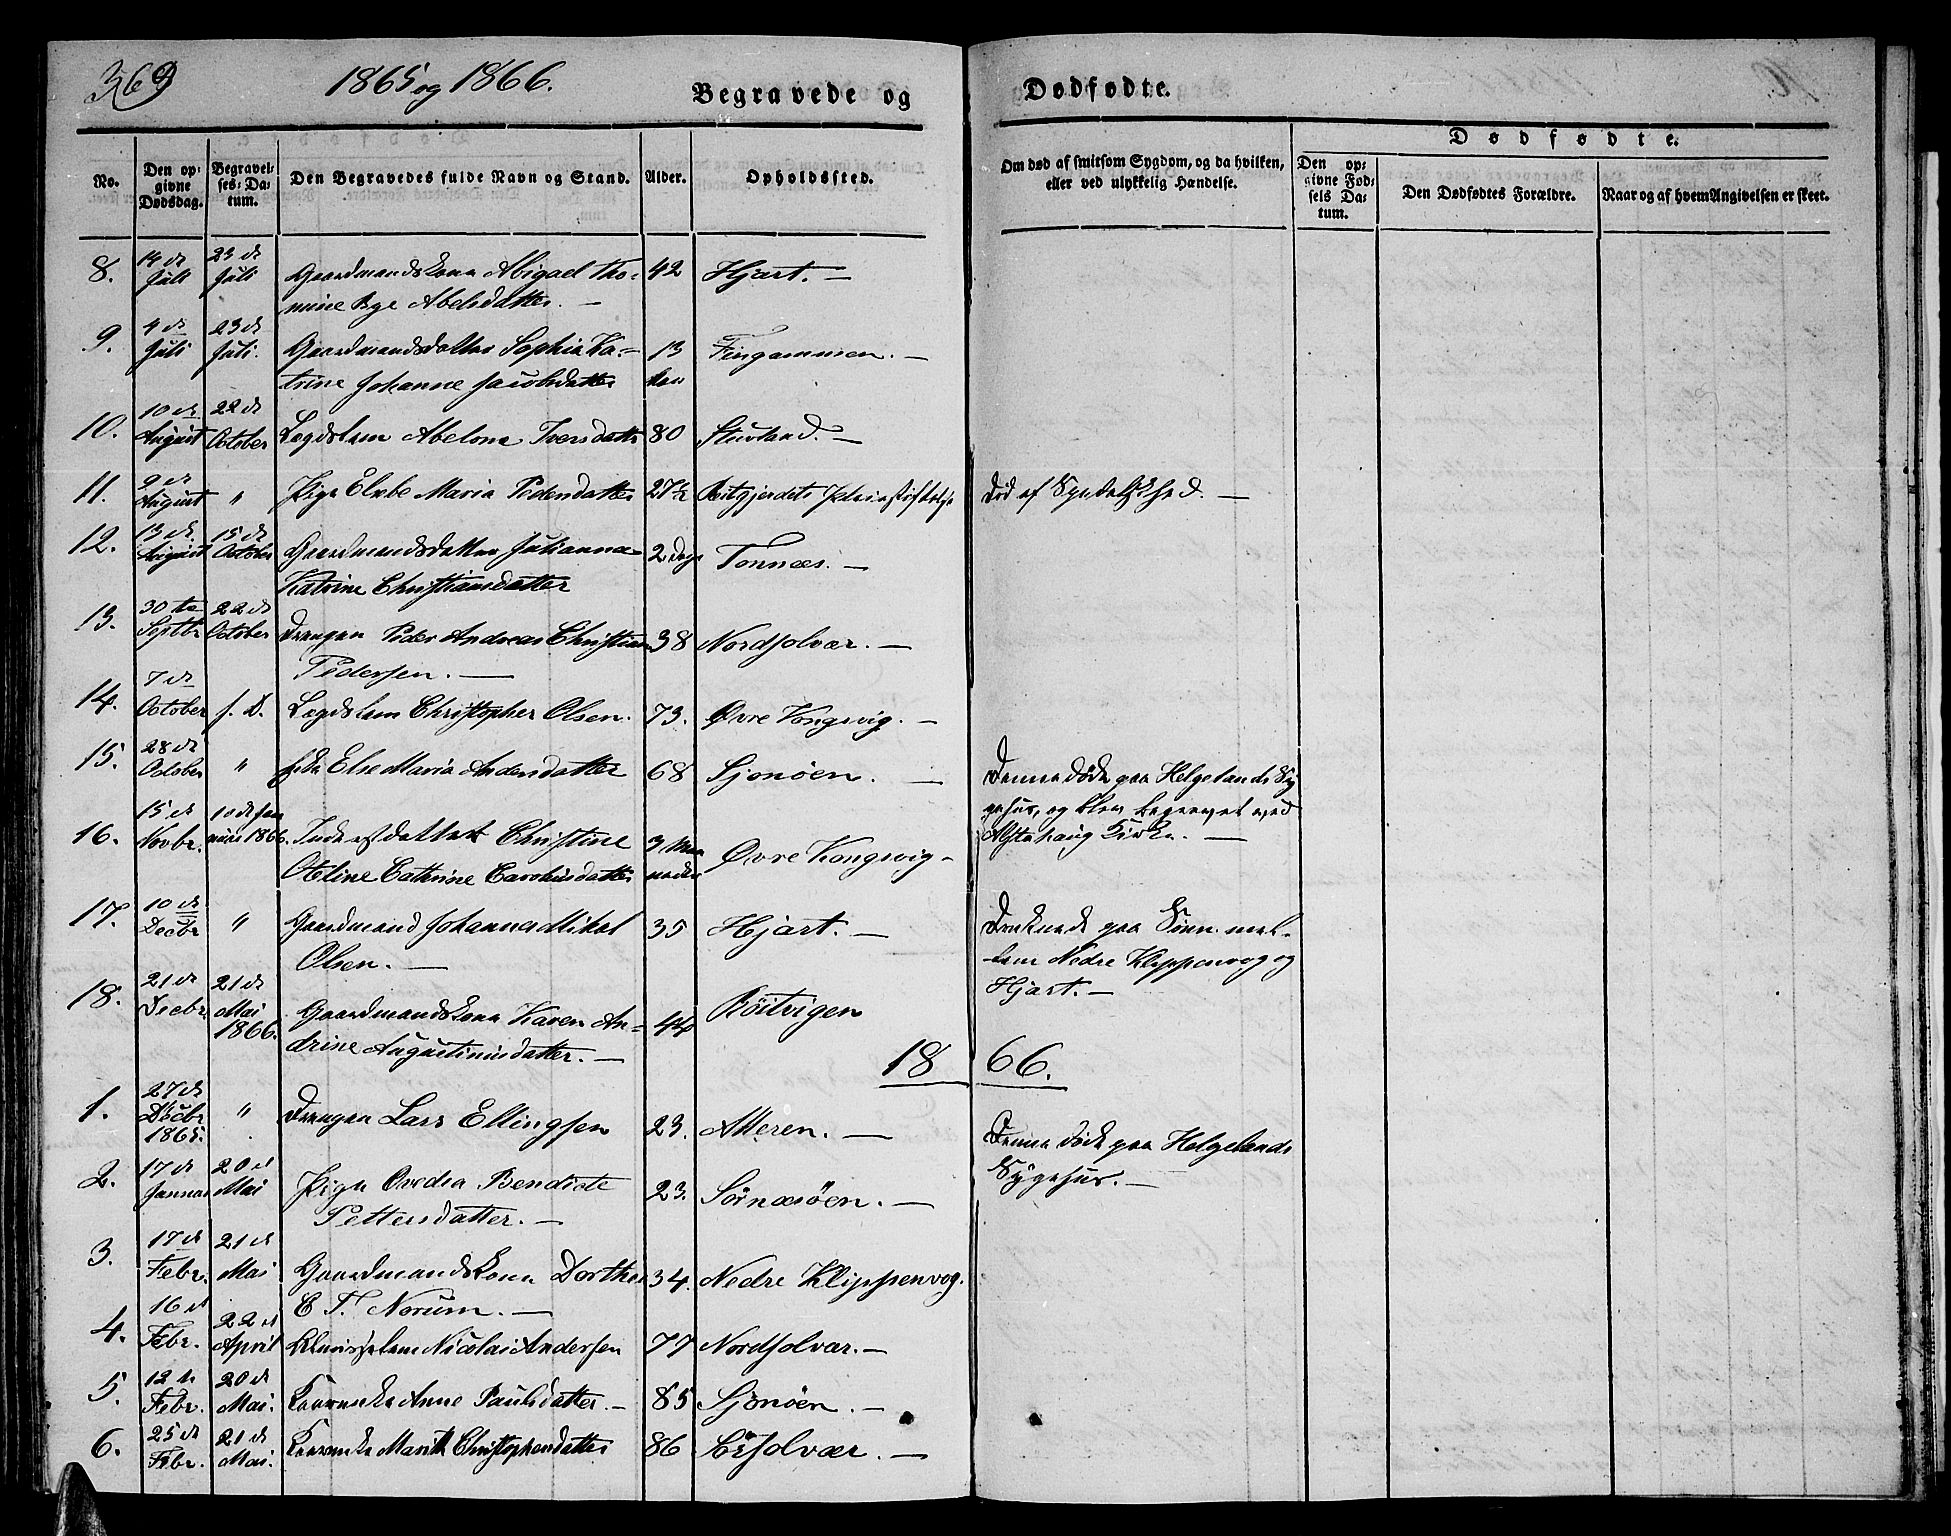 369
1865 og 1866.
Begravede og
Dødfødte.
No.
Den opgivne Dødsdag.
Begravelses-Datum.
Den Begravedes fulde Navn og Stand.
Alder.
Opholdssted.
Om død af smitsom Sygdom, og da hvilken, eller ved ulykkelig Hændelse.
Dødfødte.
Den opgivne Fødsels Datum.
Den Dødfødtes Forældre.
Naar og af hvem Angivelsen er skeet.
8. 14 de Juli 23 de Juli Gaardmandskone Abigael Tho-
mine Bye Abelsdatter. — 42 Hjart. —
9. 4 de Juli 23 de Juli. Gaardmandsdatter Sophia Ka-
trine Johanne Jacobsdatter 13 Fingammen. —
10. 10 de August 22 de October Lægdslem Abelona Iversdatter 80 Stuvland. —
11. 2 de August " Pige Elsbe Maria Pedersdatter 27½
død af Spedalskhed. —
12. 13 de August 15 de October Gaardmandsdatter Julianna
Katrine Christiansdatter 2 Dage Tonnæs. —
13. 30 te Septbr 22 de October Drengen Peder Andreas Christian
Pedersen. — 38 Nordsolvær. —
14. 7 de October s. D. Lægdslem Christopher Olsen. 73. Øvre Kongsvig. —
15. 28 de October " Else Maria Andersdatter 68 Sjonøen. —
Denne døde paa Helgelands Sy-
gehus, og blev begravet ved
Alstahaug Kirke. —
16. 15 de Novbr. 10 de Januar 1866. Inderstdatter Christine
Oteline Cathrine 3 Maaneder Øvre Kongsvig —
17. 10 de Decbr " Gaardmand Johannes Mikal
Olsen. — 35 Hjart. —
Druknede paa Søen mel-
lem Nedre Klippenvog og
Hjart. —
18. 21 de Decbr. 21 de Mai 1866. Gaardmandskone Karen An-
drine Augustinusdatter. — 44 Røitvigen
1866.
1. 27 de Decbr 1865. " Drengen Lars Ellingsen 23. Alteren. —
Denne døde paa Helgelands
Sygehus. —
2. 17 de Januar 20 de Mai Pige Ovedia Bendicte
Pettersdatter. — 23. Sørnæsøen. —
3. 17 de Febr. 21 de Mai Gaardmandskone Dorthea
E T. Norum. — 34. Nedre Klippenvog.
4. 16 de Febr. 22 de April Nicolai Andersen 77 Nordsolvær. —
5. 12 te Febr. 20 de Mai. Anne Paulsdatter. — 85 Sjonøen. —
6. 25 de Febr. 21 de Mai. Marith Christophersdatter 86 Sørsolvær. —